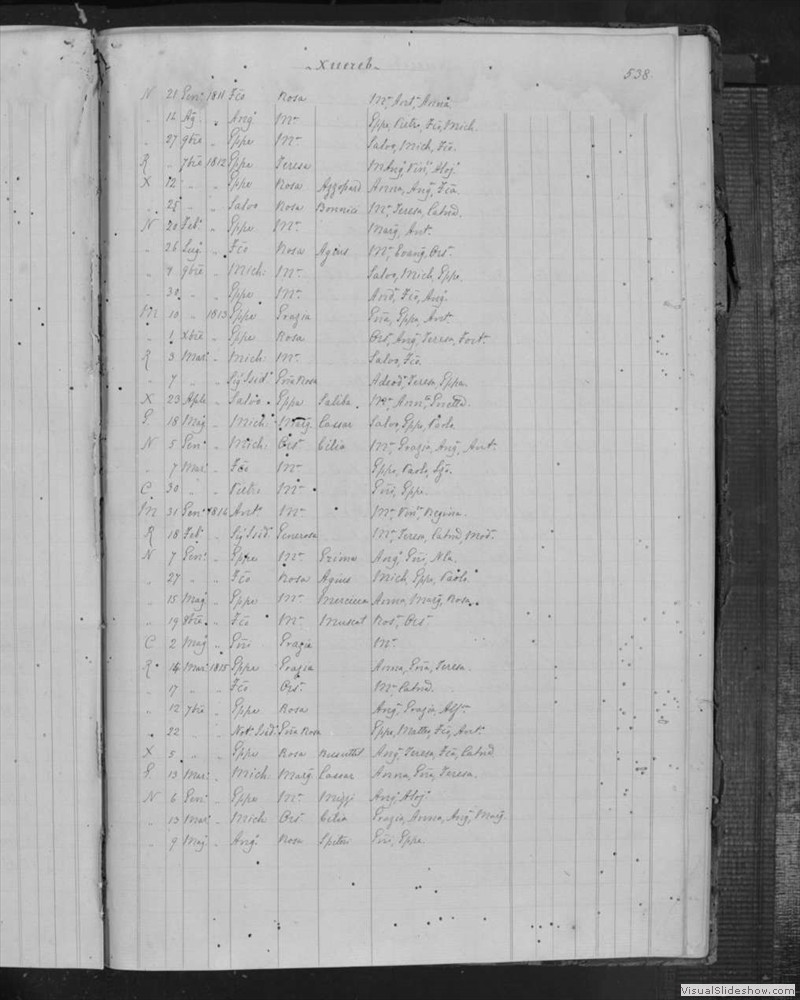 Xuereb
538
N 21 Gen. 1811 Fco Rosa M. Ant. Anna
" 16 Ag. " Ang. M. Eppa, Pietro, Fco, Mich.
" 27 9bre " Eppe M. Salvo, Mich, Fco.
R " 7bre 1812 Eppe Teresa
X 12 " " Eppe Rosa Azzopard Anna, Ang. Fca.
" 25 " " Salvo Rosa Bonnici M. Teresa, Catrid.
N 20 Feb. " Eppe M. Marg, Ant.
" 26 Lug. " Fco Rosa Agius M. Evang, Ors.
" 9 9bre " Mich. M. Salvo, Mich, Eppe.
" 30 " " Eppe M. And. Fco, Ang.
M 10 " 1813 Eppe Grazia Gna, Eppa, Ant.
" 1 Xbre " Eppe Rosa Ors. Ang. Teresa, Fort.
R 3 Mar. " Mich. M. Salvo, Fco.
" 7 " Sig Isid. Gna Rosa Adeod, Teresa, Eppa.
X 23 Aple " Salvo Eppa Saliba M. Ann.
G 18 Mag " Mich. Marg. Cassar Salvo, Eppe, Paolo
N 5 Gen. " Mich. Ors. Cilia M. Grazia, Ang, Ant.
" 7 Mar. " Fco M. Eppe, Paolo,
C 30 " " Pietro M. Gni, Eppe.
M 31 Gen. 1814 Ant. M. M. Regina.
R 18 Feb. " Sig Isid. Generosa M. Teresa, Catrid. Mod.
N 7 Gen. " Eppe M. Grima Ang. Gni,
" 27 " " Fco Rosa Agius Mich, Eppe, Paolo.
" 15 Mag " Eppe M. Mercieca Anna, Marg, Rosa.
" 19 8bre " Fco M. Muscat Ros. Ors.
C 2 Mag " Gni Grazia M.
R 14 Mar. 1815 Eppe Grazia Anna, Gna, Teresa.
" 17 " " Fco Ors. M. Catrid.
" 12 7bre " Eppe Rosa Ang. Grazia, Alf.
" 22 " Not. Isid. Gna Rosa Eppe, Matteo, Fco, Ant.
X 5 " " Eppe Rosa Busuttil Ang. Teresa, Fca, Catrid.
G 13 Mar. " Mich Marg Cassar Anna, Gna, Teresa.
N 6 Gen. " Eppe M. Mizzi Ang. Aloj.
" 13 Mar. " Mich Ors. Cilia Grazia, Anna, Ang. Marg.
" 9 Mag. " Ang. Rosa Spiteri Gni, Eppa.
VisualSlideshow.com